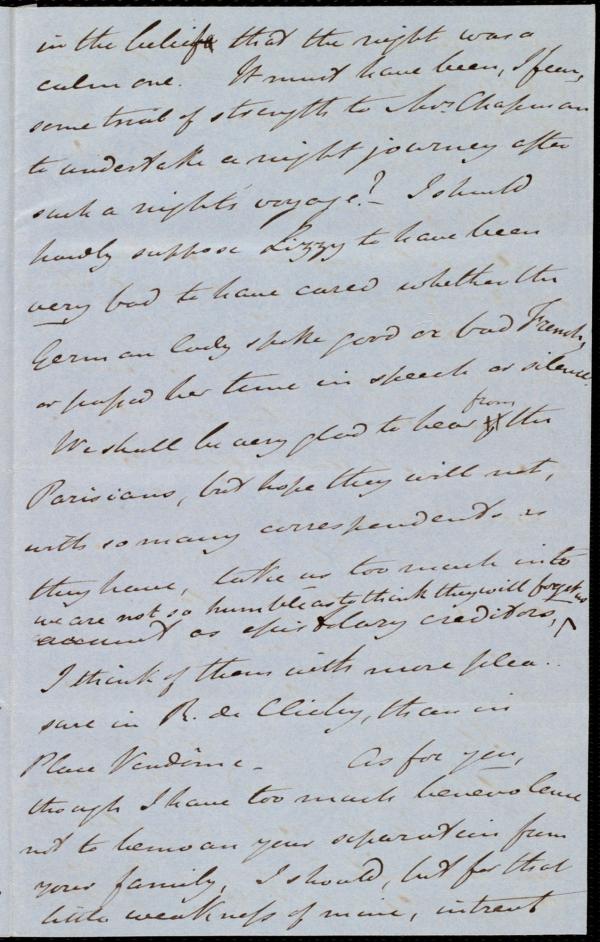 in the belief that the night was a
calm one. It must have been, I fear,
some trial of strength to Mrs. Chapman
to undertake a night journey after
such a night's voyage? - I should
hardly suppose Lizzy to have been
very bad to have cared whether the
German lady spoke good or bad French,
or passed her time in speech or silence.
We shall be very glad to hear from the
Parisians, but hope they will not,
with so many correspondents as
they have, take us too much into
we are not so humble as to think they will forget us
account as epistolary creditors, ^
I think of them with more plea-
sure in R. de Clichy, than in
Place Vendôme - As for you,
though I have too much benevolence
not to bemoan your separation from
your family, I should, but for that
little weakness of mine, intreat